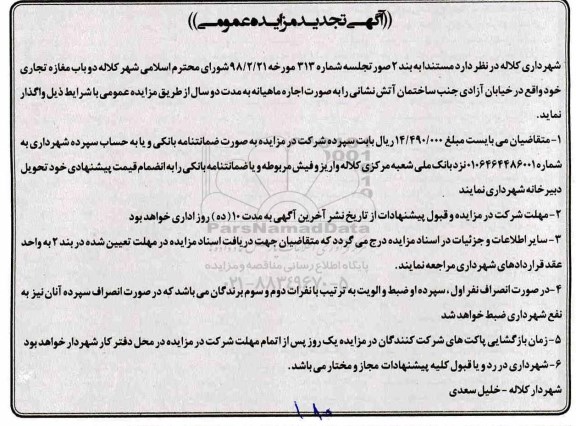 ((آگهی تجدید مزایده عمومی))
شهرداری کلاله در نظر دارد مستندا به بند ۲ صورتجلسه شماره ۳۱۳ مورخه ۹۸/۲/۲۱ شورای محترم اسلامی شهر کلاله دو باب مغازه تجاری
خود واقع در خیابان آزادی جنب ساختمان آتش نشانی را به صورت اجاره ماهیانه به مدت دو سال از طریق مزایده عمومی با شرایط ذیل واگذار
نماید.
۱- متقاضیان می بایست مبلغ ۱۴/۴۹۰/۰۰۰ ریال بابت سپرده شرکت در مزایده به صورت ضمانتنامه بانکی و یا به حساب سپرده شهرداری به
شماره ۰۱۰۶۴۶۴۴۸۶۰۰۱ نزد بانک ملی شعبه مرکزی کلاله واریز و فیش مربوطه و یا ضمانتنامه بانکی را به انضمام قیمت پیشنهادی خود تحویل
دبیرخانه شهرداری نمایند
۲- مهلت شرکت در مزایده و قبول پیشنهادات از تاریخ نشر آخرین آگهی به مدت ۱۰ (ده) روز اداری خواهد بود
ParsNamadData
۳- سایر اطلاعات و جزئیات در اسناد مزایده درج می گردد که متقاضیان جهت دریافت اسناد مزایده در مهلت تعیین شده در بند ۲ به واحد
عقد قراردادهای شهرداری مراجعه نمایند.
پایگاه اطلاع رسانی مناقصه و مزایده
۰۲۱-۸۸۳۴۹۶۷۰-۵
۴- در صورت انصراف نفر اول ، سپرده او ضبط و الویت به ترتیب با نفرات دوم و سوم برندگان می باشد که در صورت انصراف سپرده آنان نیز به
نفع شهرداری ضبط خواهد شد
۵- زمان بازگشایی پاکت های شرکت کنندگان در مزایده یک روز پس از اتمام مهلت شرکت در مزایده در محل دفتر کار شهردار خواهد بود
۶- شهرداری در رد و یا قبول کلیه پیشنهادات مجاز و مختار می باشد.
شهردار کلاله - خلیل سعدی